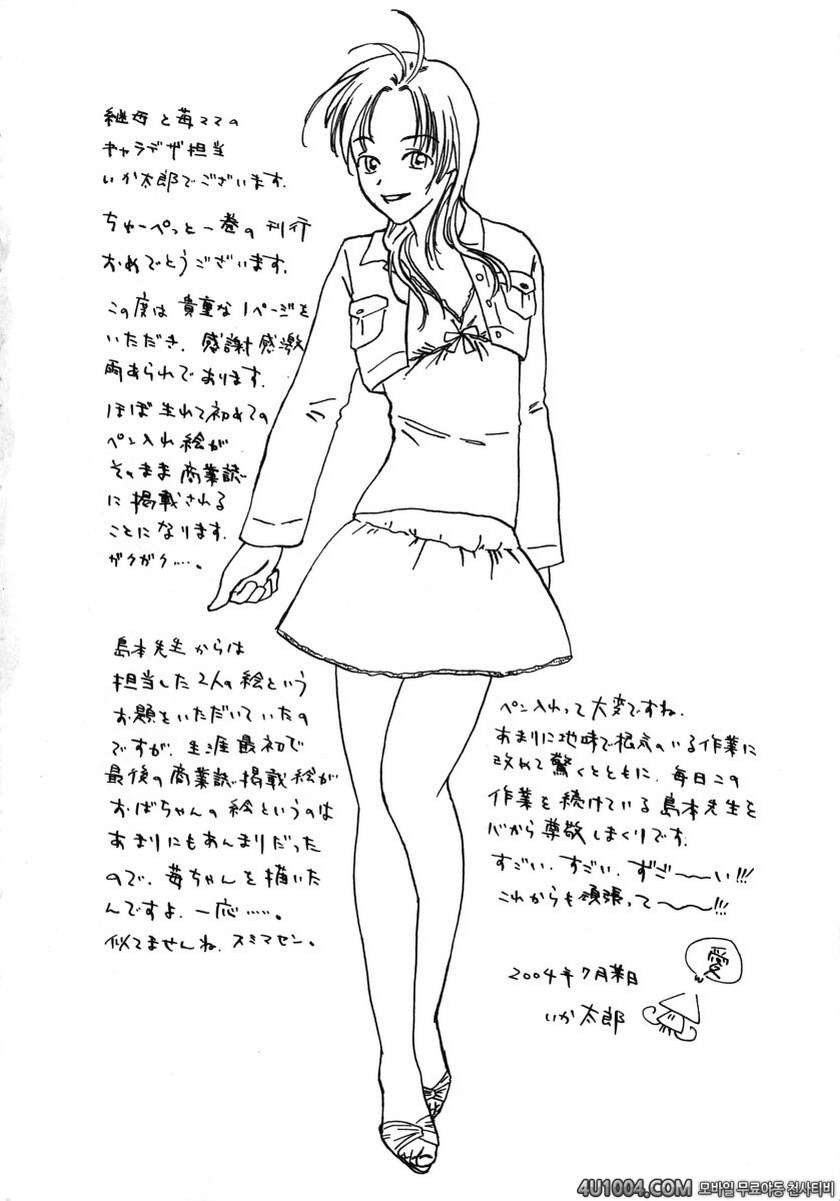 継母と苺ママの
キャラデザ担当
いか太郎でございます.
ちゅーぺっと一巻の刊行
おめでとうございます.
この度は貴重な1ページを
いただき.感謝感激
雨あられであります.
ほぼ生れて初めての
ペン入れ絵が
そのまま商業誌
に掲載される
ことになります.
ガクガク……。
島本先生からは
担当した2人の絵という
お題をいただいていたの
ですが.生涯最初で
最後の商業誌掲載絵が
おばちゃんの絵というのは
あまりにもあんまりだった
ので、苺ちゃんを描いた
んですよ.一応……。
似てませんね.スミマセン。
ペン入れって大変ですね.
あまりに地味で根気のいる作業に
改めて驚くとともに.毎日この
作業を続けている島本先生を
心から尊敬しまくりです.
すごい.すごい.ずご〜〜い!!!
これからも頑張って〜〜!!!
愛
2004年7月某日
いか太郎
4U1004.COM 모바일 무료야동 천사티비